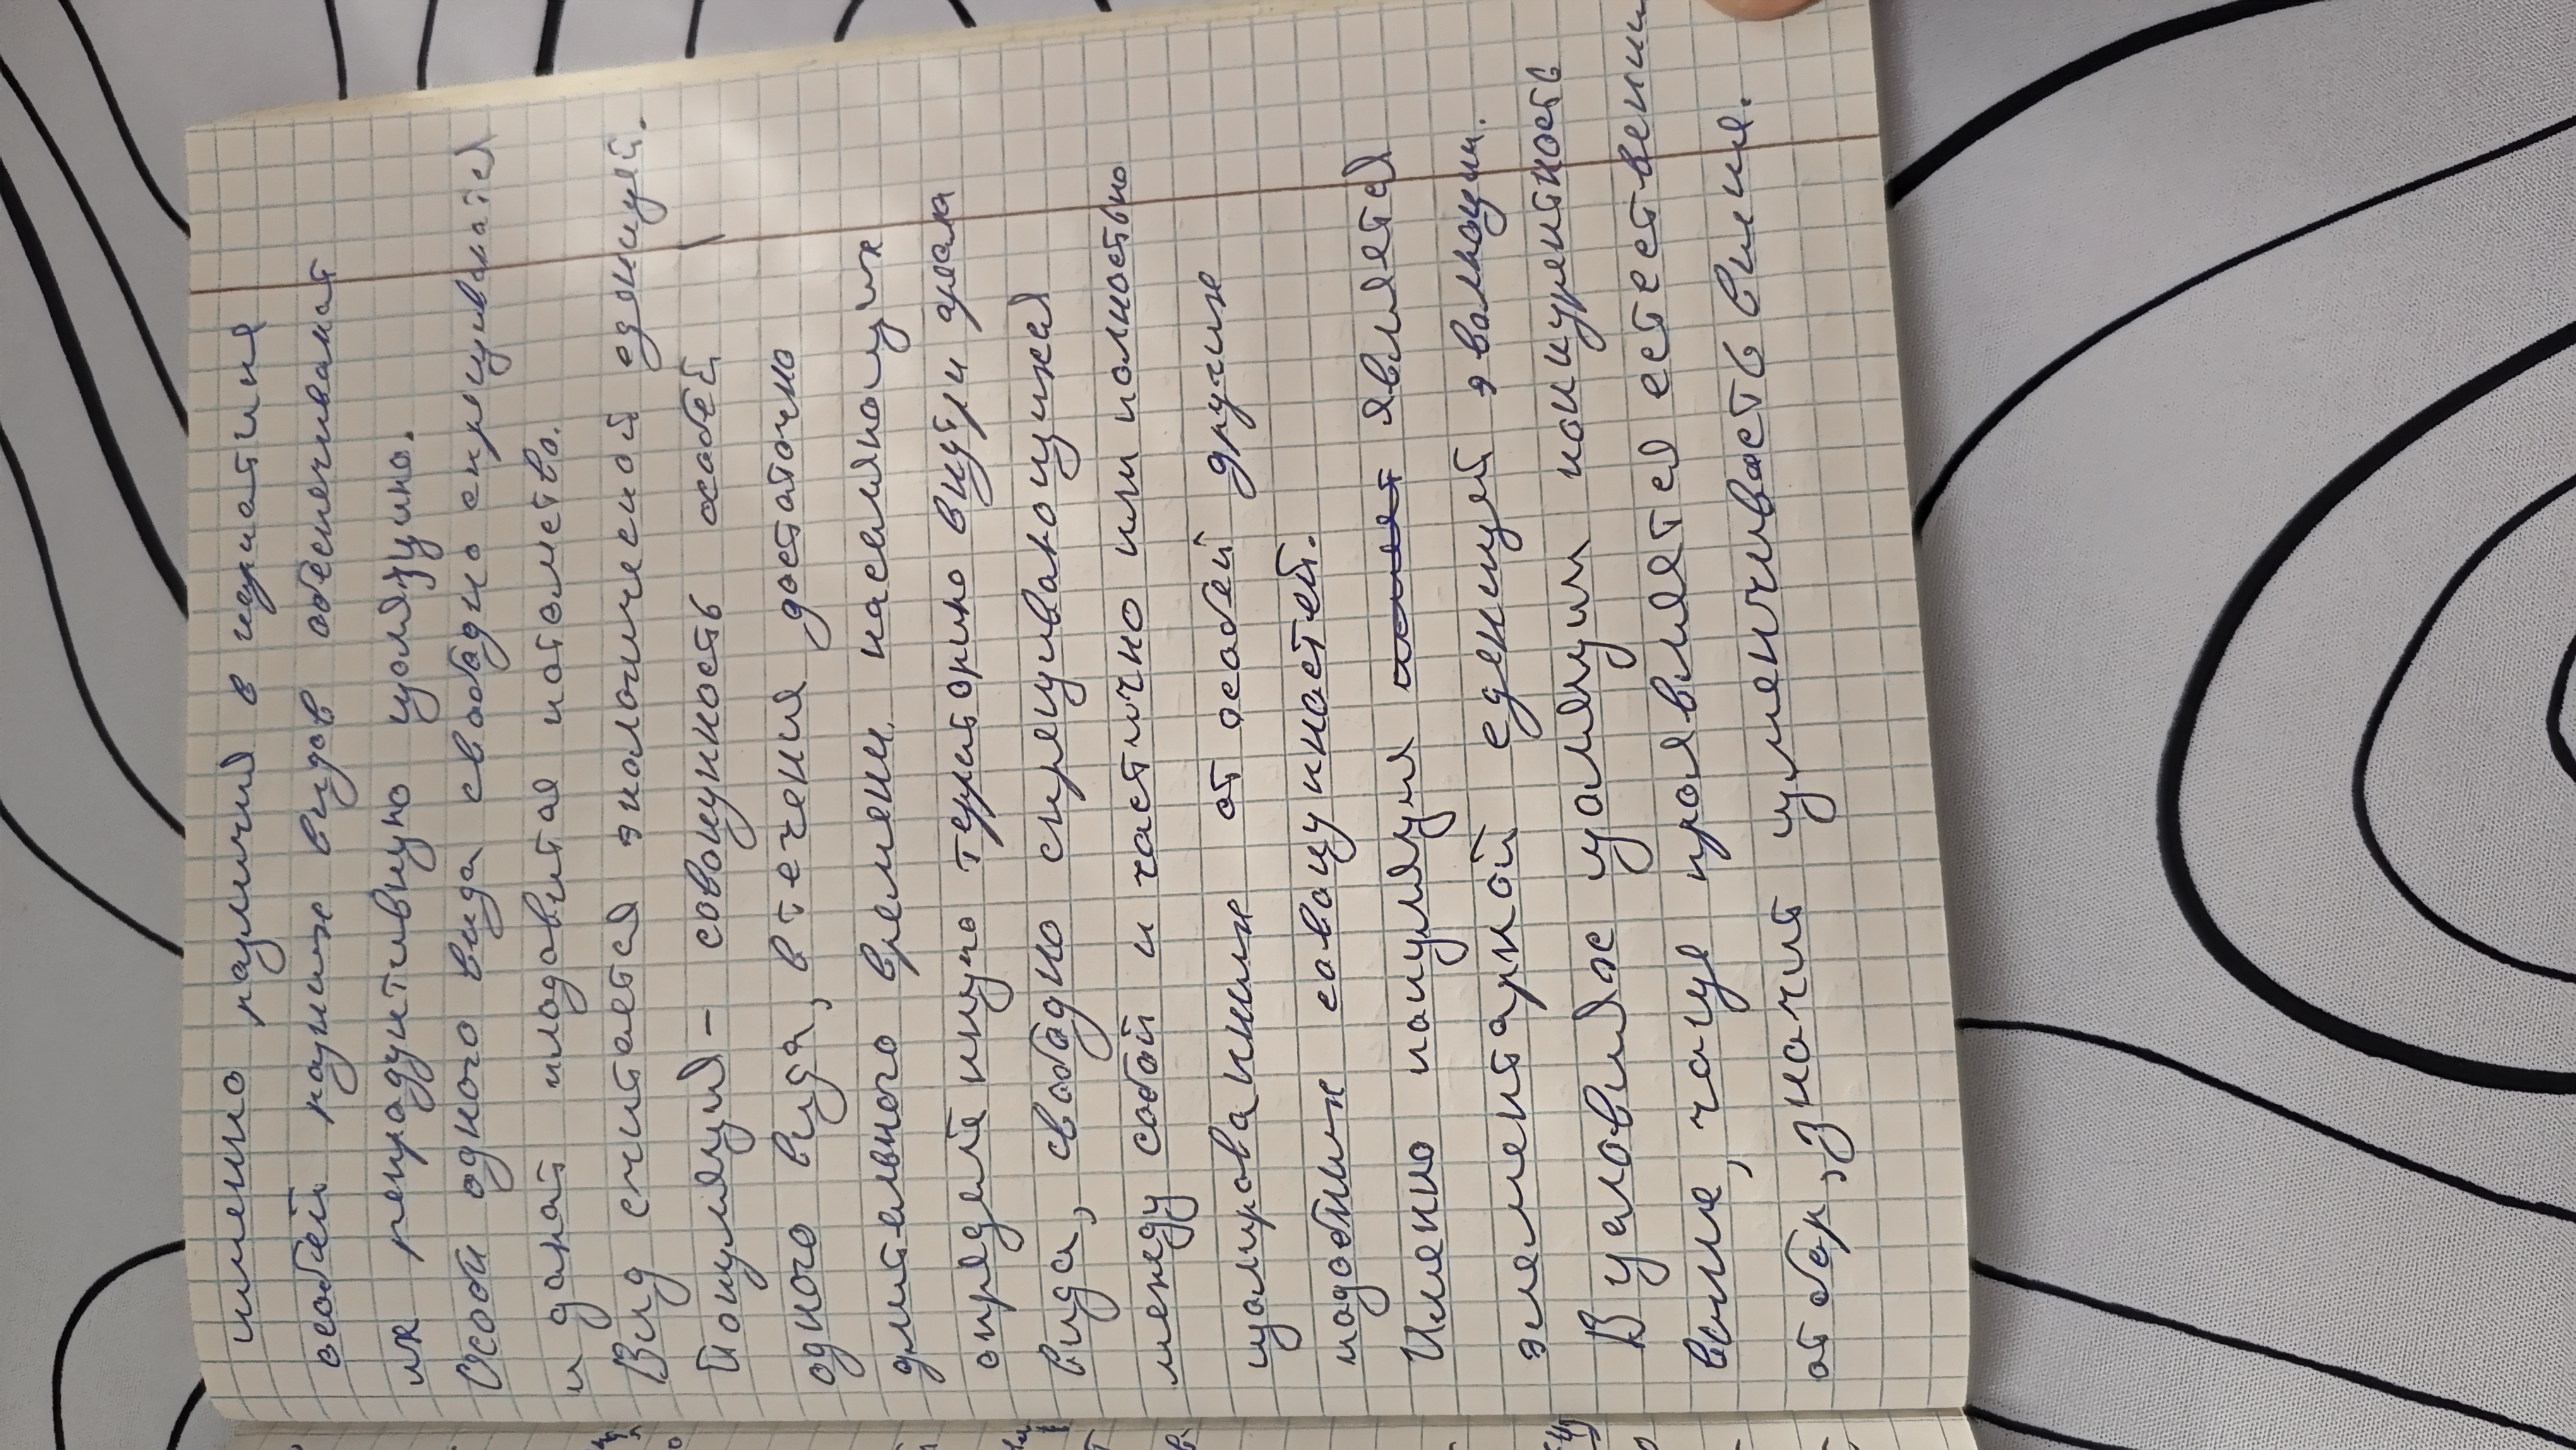 именно различия в кариатипе
особей разных видов обеспечивают
их репродуктивную изоляцию.
Особи одного вида свободно скрещиваются
и дают плодовитое потомство.
Вид считается экологической единицей.
Популяция - совокупность особей
одного вида, в течении достаточно
длительного времени населяющих
определённую территорию внутри ареала
вида, свободно скрещивающихся
между собой и частично или полностью
изолированных от особей других
подобных совокупностей.
Именно популяция является
элементарной еденицей эволюции.
В условиях изоляции конкурентность
выше, чаще проявляется естественный
отбор, значит увеличивается